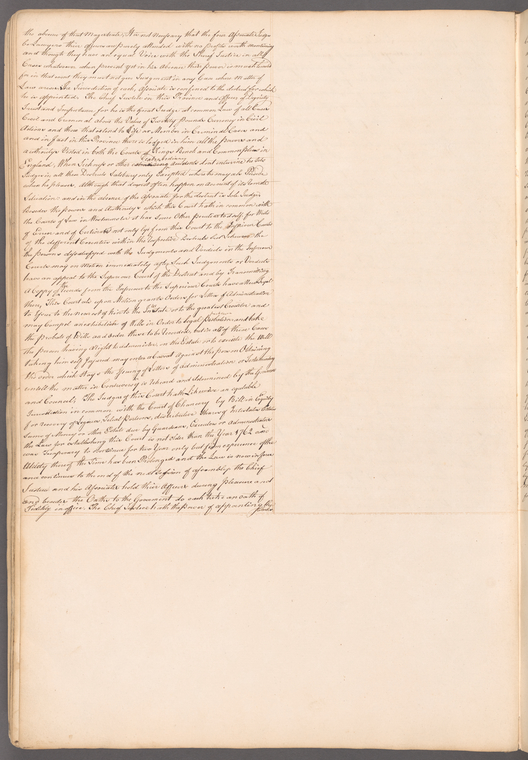 the absence of that Magistrate, It is not necessary that the four Associate Judges
be Lawyers their offices are poorly attended with no profits worth mentioning
and though they have an equal Voice with the Chief Justice in all
Causes whatsoever when present yet in his Absence their power is
for in that event they must not give Judgment in any Cause when Matter of
Law arises the Jurisdiction of each Associate is confined to the district for which
he is appointed. The Chief Justice in this Province and Office of Dignity
Trust and Importance, for he is the Great Judge at common Law of all Causes
Civil and Criminal above the Value of Twenty pounds Currency in Civil
Actions and those that extend to Life or Member in Criminal Cases and
and in fact in this Province there is lodged in him all the powers and
authoritys Vested in both the Courts of Kings Bench and Common pleas in
England. When Sickness or other accidents dont intervene to
Judge in all these Districts Salisbury only Excepted where he may also Attend
when he pleases. Although that does not often happen on account of its Remote
Situation and in the absence of the Associate for the district in which Judge
besides the powers and Authoritys which this Court hath in common with
the Courts of Law in Westminster it has Some Other peculiar to itself for Writs
of Error and of Certiorari not only lye from this Court to the Inferior Courts
of the different Counties within the respective Districts but likewise the
the persons dissatisfyed with the Judgements and Verdicts in the Inferior
Courts may on Motion immediately after Such Judgements or Verdicts
have an appeal to the Superior Court of the District and by Transmitting
a Copy of the Record from the Inferior to the Superior Courts have a
there, This Court also upon Motion grants Orders for Letters of Administration
to Issue to the nearest of kin to the Intestate or to the greatest Creditor and
may Compel an exhibition of Wills in Order to Legal probation and take
the probate of Wills and order them to be recorded, but in all of these Cases
the person having Right to Administer on the Estate or to execute the Will
thinking himself Injured may enter a Caveat against the person Obtaining
this order which Stays the Issuing of Letters of administration or Testamentary
untill the matter in Controversy is heard and determined by the Governor
and Council. The Judges of this Court hath Likewise an equitable
Jurisdiction in common with the Court of Chancery by Bill in Equity
for recovery of Legacies Filial Portions, distributive Shares of Intestates Estates
Sums of Money or other Estate due by Guardians, Executors or administrators
the Law for establishing this Court is not older than the Year 1762 and
was Temporary to endure for two Years only but from experience of the
Utility thereof the Time has been Prolonged and the Law is now in force
and continues to the end of the next Session of Assembly the Chief
Justice and his Associates hold their Offices during pleasure and
and besides the Oaths to the Government do each take an oath of
Fidelity in office. The Chief Justice hath the power of appointing the